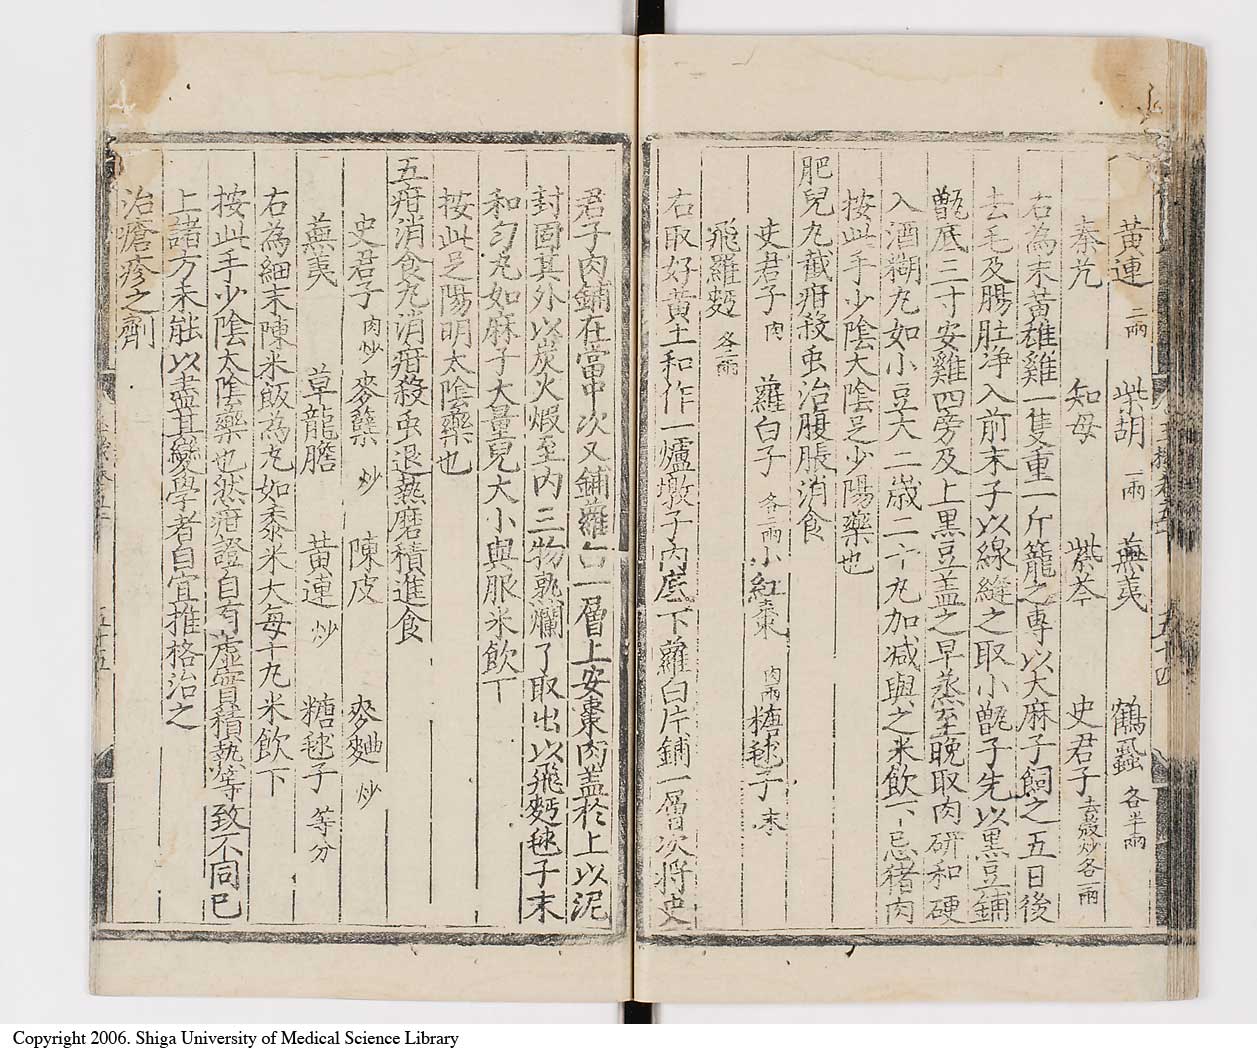 黃連二兩 柴胡一兩 蕪荑 鶴蝨各半兩
秦艽 知母 紫芩 史君子去殼炒各一兩
右為末黃雄雞一隻重一斤籠之專以大麻子飼之五日後
去毛及腸肚淨入前末子以線縫之取小甑子先以黑豆鋪
甑底三寸安雞四旁及上黑豆盖之早蒸至晚取肉研和硬
入酒糊丸如小豆大二歲二十丸加减與之米飲下忌猪肉
按此手少陰太陰足少陽藥也
肥兒丸戴疳殺虫治腹脹消食
史君子肉 蘿白子各二兩 小紅棗肉兩 糖毬子末
飛羅麪各二兩
右取好黃土和作一爐墩子內底下蘿白片鋪一層次將史
君子肉鋪在當中次又鋪蘿白一層上安棗肉盖於上以泥
封固其外以炭火煆至內三物軟爛了取出以飛麪毬子末
和勻丸如麻子大量兒大小與服米飲下
按此足陽明太陰藥也
五疳消食丸消疳殺虫退熱磨積進食
史君子肉炒 麥櫱炒 陳皮 麥麯炒
蕪荑 草龍膽 黃連炒 糖毬子等分
右為細末陳米飯為丸如黍米大每十丸米飲下
按此手少陰太陰藥也然疳證自有虛實積熱等致不同已
上諸方未能以盡其變學者自宜推格治之
治瘡疹之劑